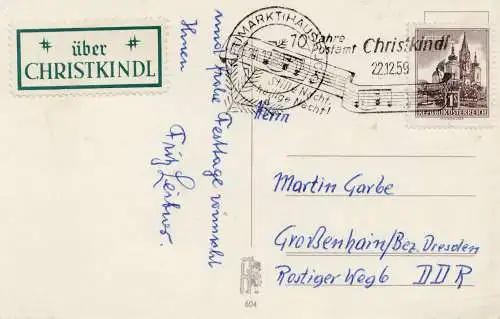 über
CHRISTKINDL
und frohe Festtage wünscht
Ihnen
Fritz Leitner.
10 Jahre
Postamt Christkindl
22.12.59
Stille Nacht,
heilige Nacht!
1S
REPUBLIK ÖSTERREICH
Herrn
Martin Garbe
Großenhain/Bez. Dresden
Rostiger Weg 6 DDR
604